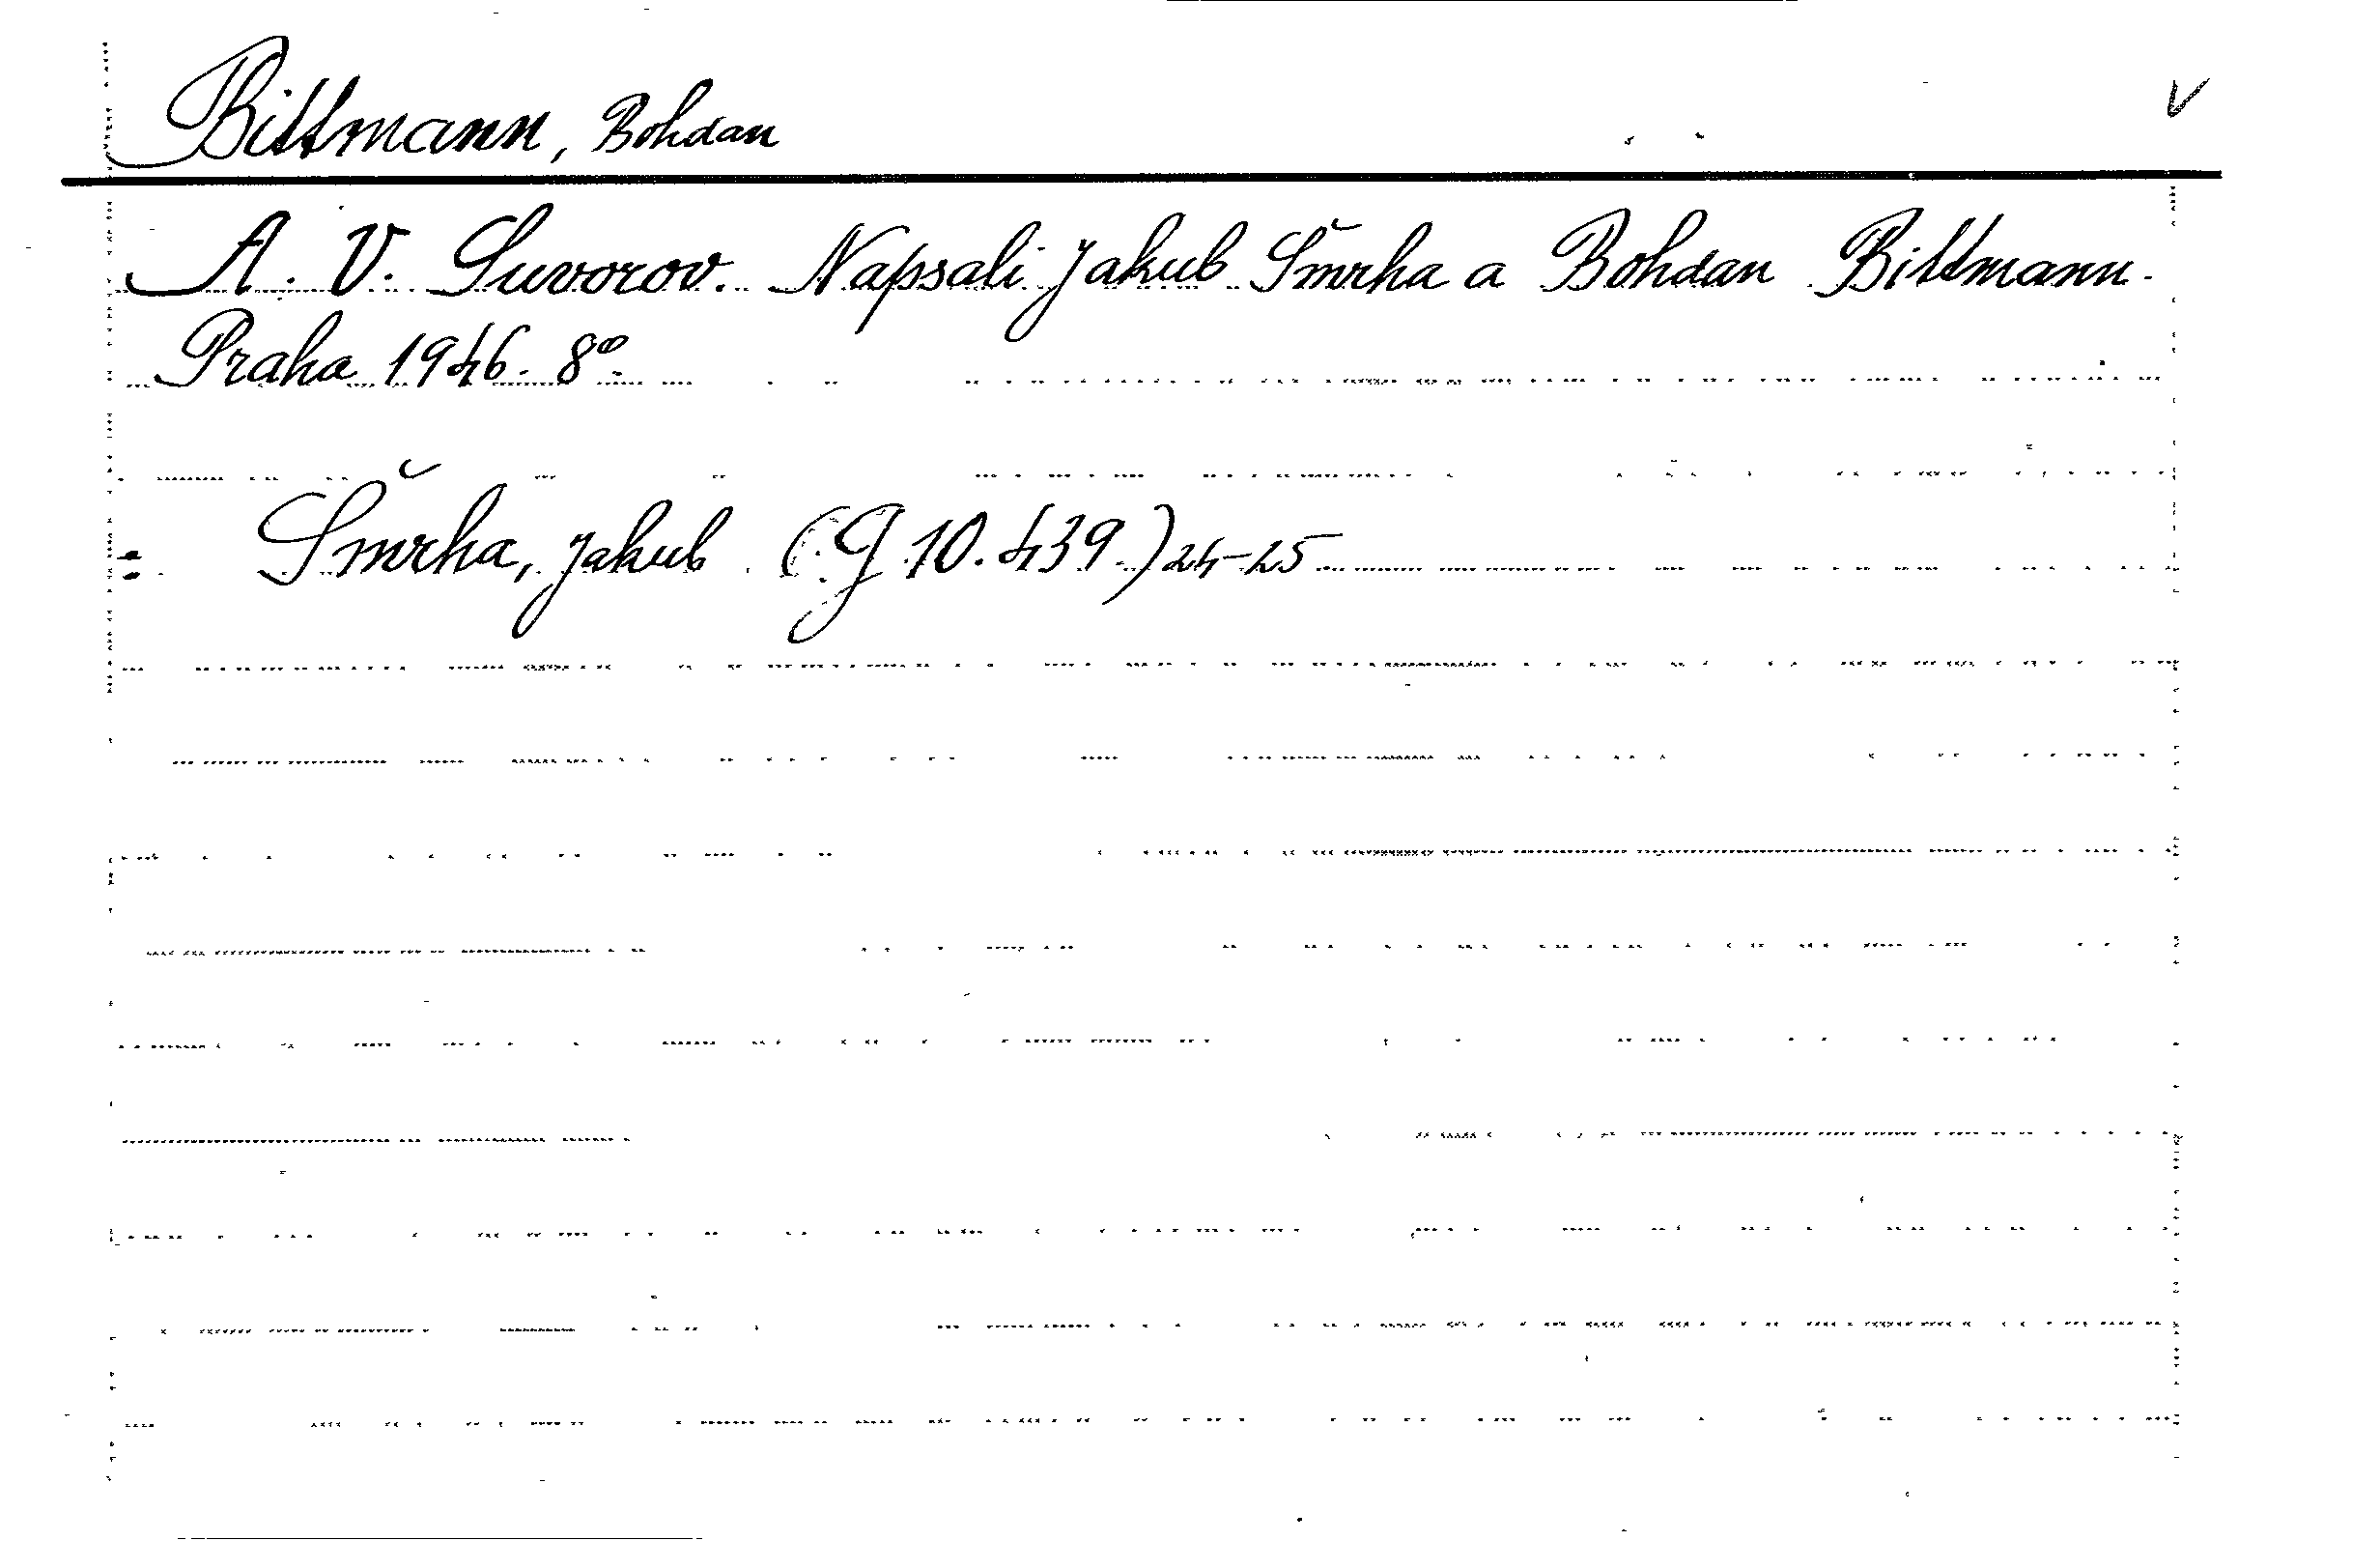 Bittmann, Bohdan V
A. V. Suvorov. Napsali Jakub Šmrha a Bohdan Bittmann.
Praha 1946. 8°.
= Šmrha, Jakub (G 10.439.) 24-25